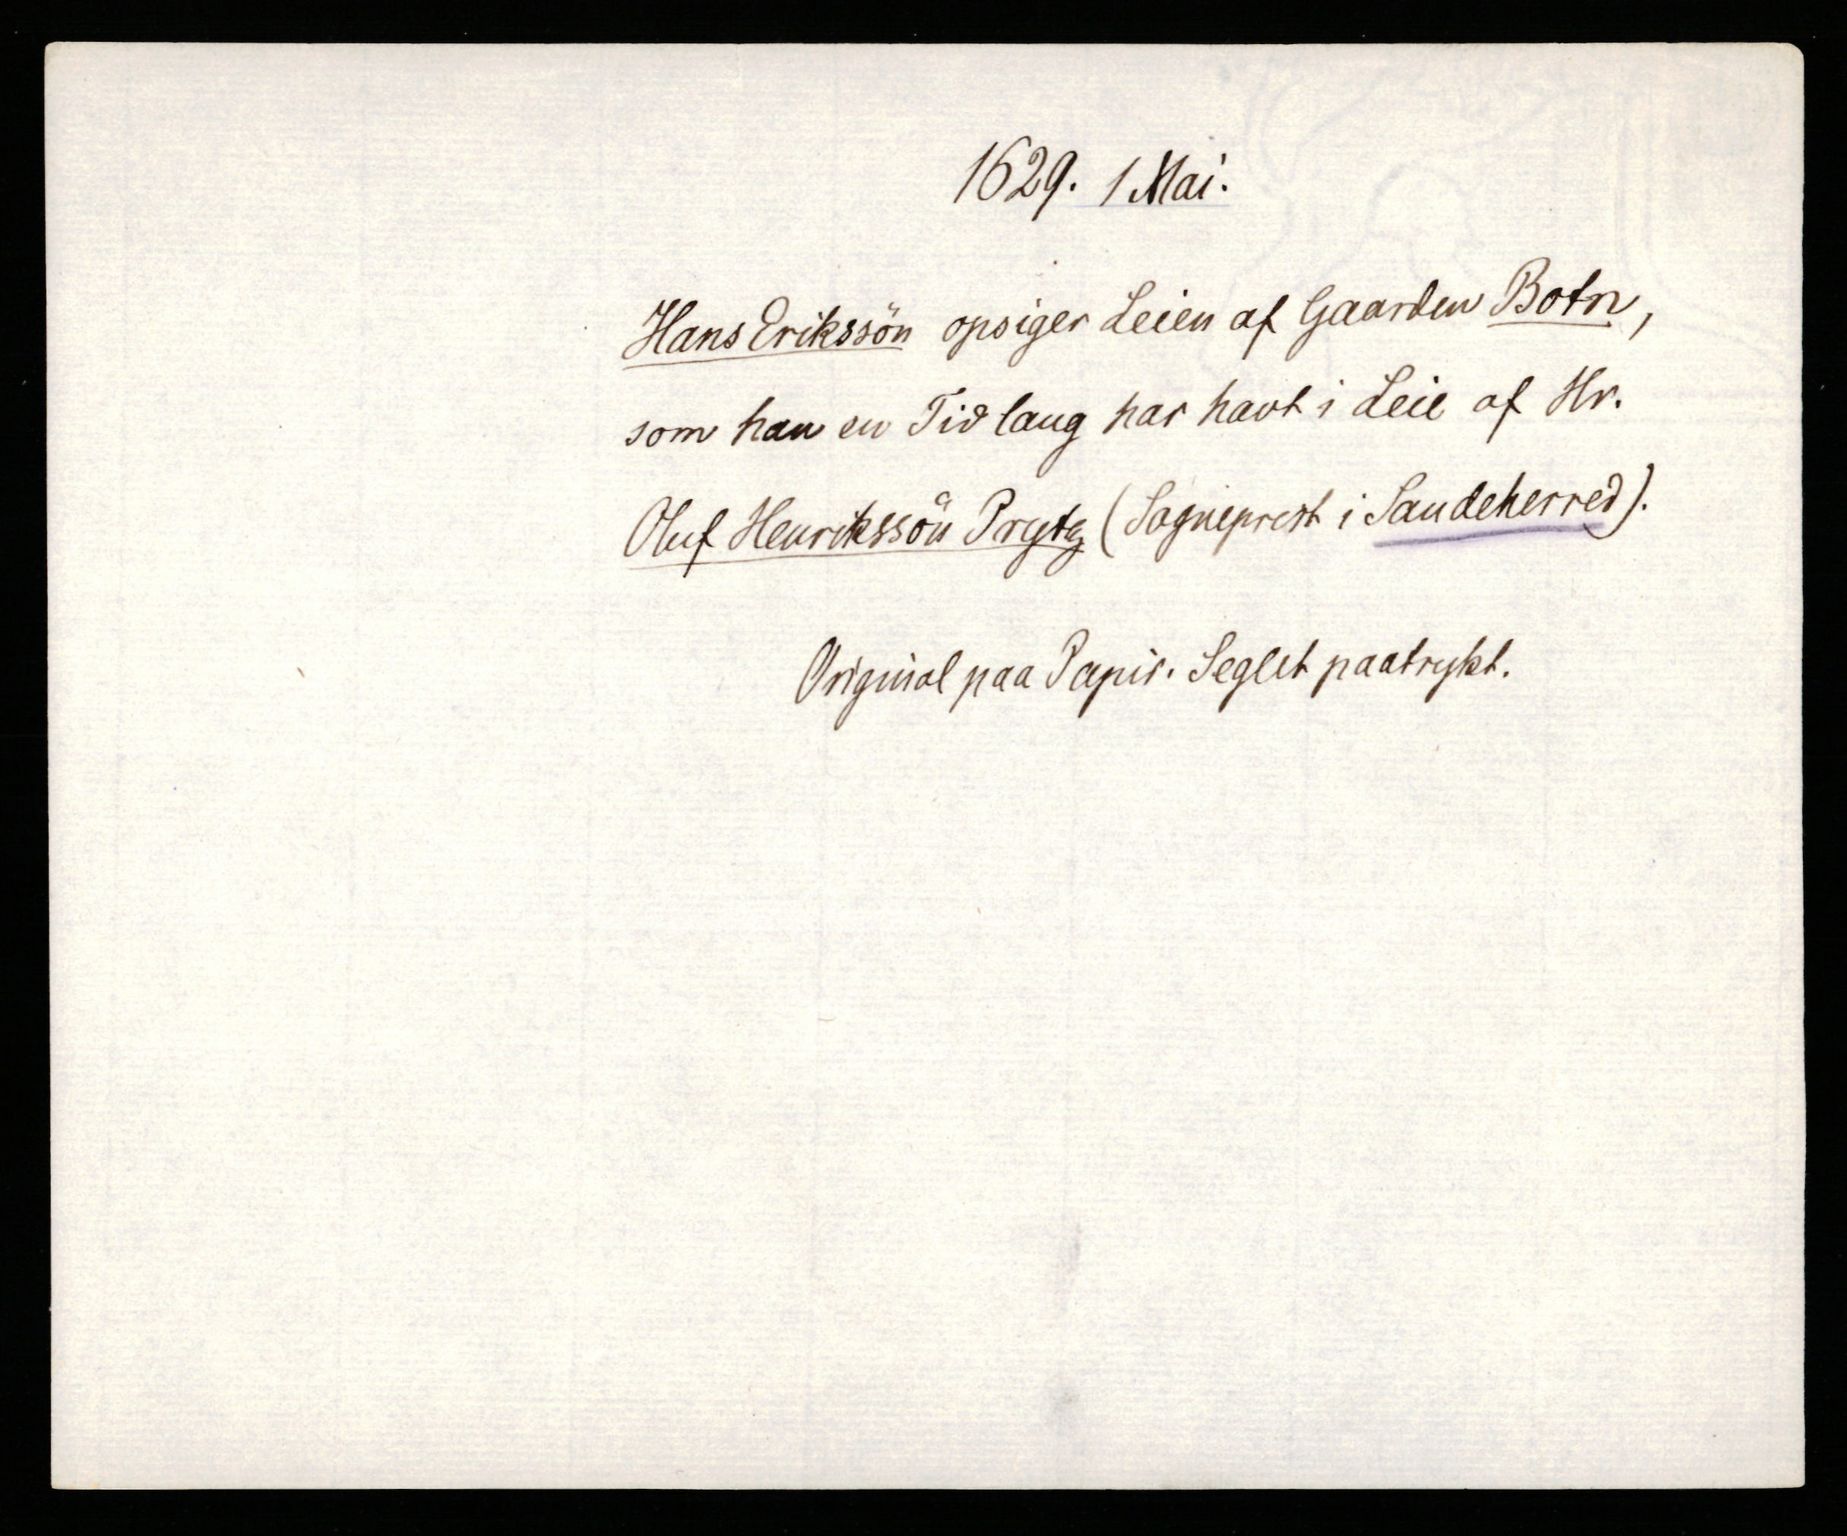 1629. 1 Mai.
Hans Erikssön opsiger Leien af Gaarden Botn,
som han en Tid lang har havt i Leie af Hr.
Oluf Henrikssön Prytz (Sogneprest i Sandeherred).
Original paa Papir. Seglet paatrykt.